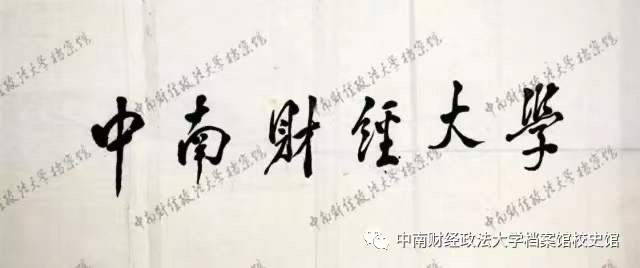 中南财经大学
中南财经政法大学档案馆校史馆
中南财经政法大学档案馆
中南财经政法大学档案馆
中南财经政法大学档案馆
中南财经政法大学档案馆
中南财经政法大学档案馆
中南财经政法大学档案馆